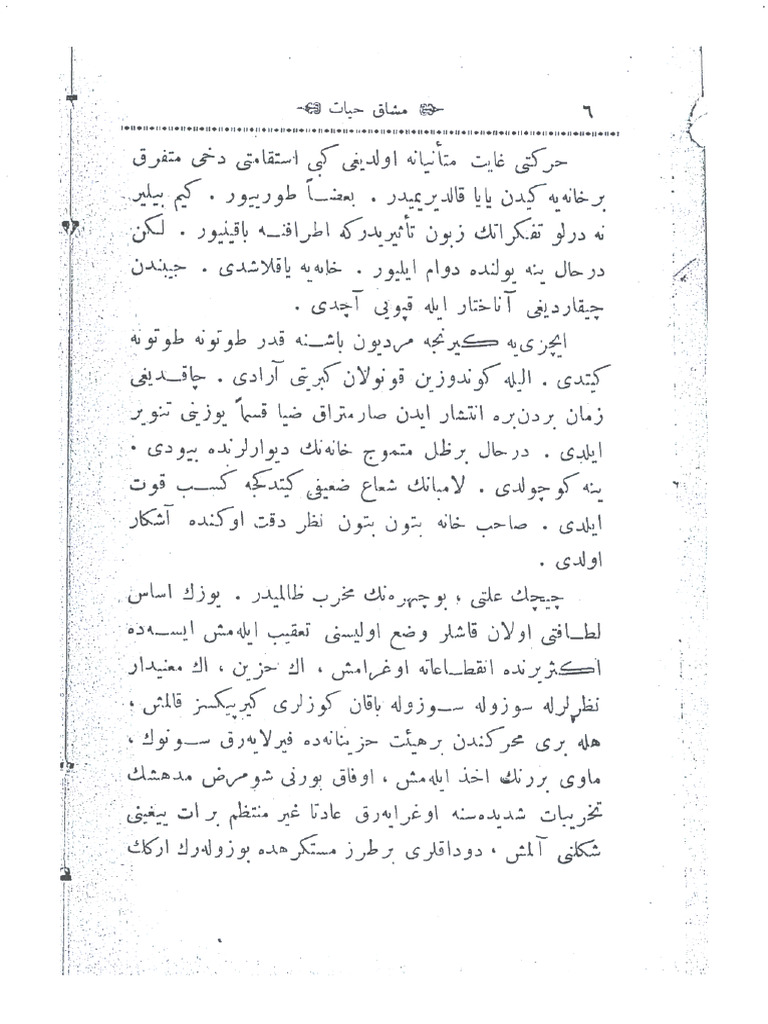 ٦ مشاق حیات
حركتی غایت متأنیانه اولدیغی كبی استقامتی دخی متفرق
برخانه‌یه كیدن یایا قالدیریمیدر . بعضاً طورییور . كیم بیلیر
نه درلو تفكراتك زبون تأثیریدركه اطرافنه باقینیور . لكن
درحال ینه یولنده دوام ایلیور . خانه‌یه یاقلاشدی . جیبندن
چیقاردیغی آناختار ایله قپویی آچدی .
ایچری‌یه كیرنجه مردیون باشنه قدر طوتونه طوتونه
كیتدی . الیله كوندوزین قونولان كبریتی آرادی . چاقدیغی
زمان بردن‌بره انتشار ایدن صارمتراق ضیا قسماً یوزینی تنویر
ایلدی . درحال برظل متموج خانه‌نك دیوارلرنده بیودی .
ینه كوچولدی . لامبانك شعاع ضعیفی كیتدكجه كسب قوت
ایلدی . صاحب خانه بتون بتون نظر دقت اوكنده آشكار
اولدی .
چیچك علتی ، بوچهره‌نك مخرب ظالمیدر . یوزك اساس
لطافتی اولان قاشلر وضع اولیسنی تعقیب ایله‌مش ایسه‌ده
اكثریرنده انقطاعاته اوغرامش ، اك حزین ، اك معنیدار
نظرلرله سوزوله سوزوله باقان كوزلری كیرپیكسز قالمش ،
هله بری محركندن برهیئت حزینانه‌ده فیرلایه‌رق سونوك ،
ماوی بررنك اخذ ایله‌مش ، اوفاق بورنی شومرض مدهشك
تخریبات شدیده‌سنه اوغرایه‌رق عادتا غیر منتظم برات ییغینی
شكلنی آلمش ، دوداقلری برطرز مستكرهده بوزوله‌رك اركك